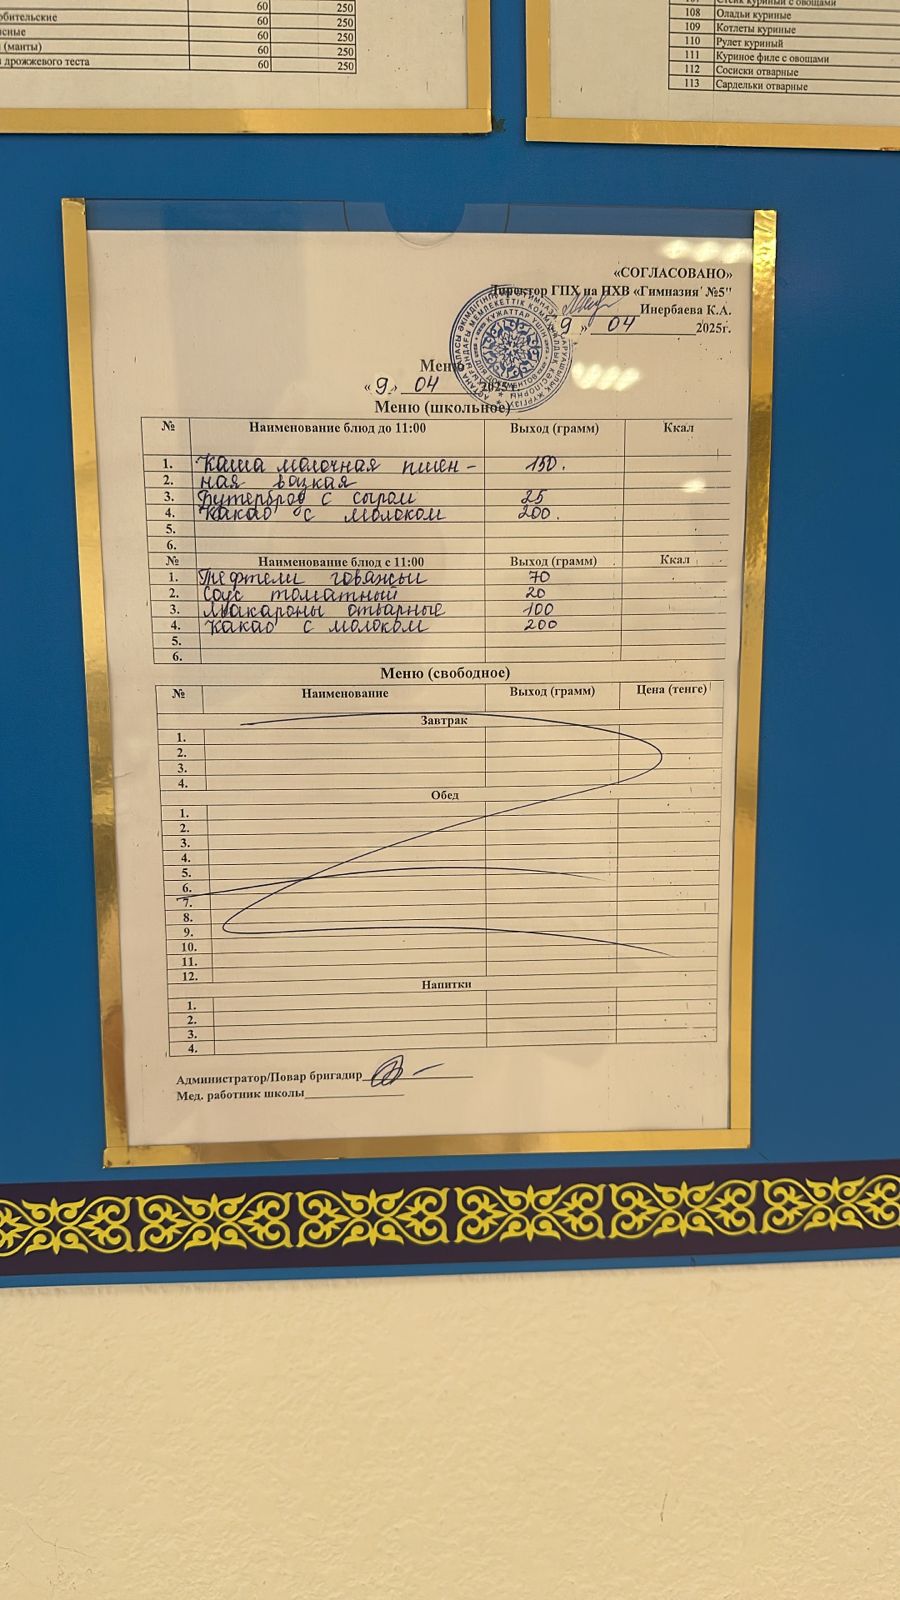 60 250
обительские 60 250
есные 60 250
(манты) 60 250
дрожжевого теста 60 250
107 Стейк куриный с овощами
108 Оладьи куриные
109 Котлеты куриные
110 Рулет куриный
111 Куриное филе с овощами
112 Сосиски отварные
113 Сардельки отварные
«СОГЛАСОВАНО»
Директор ГПХ на ПХВ «Гимназия №5"
Инербаева К.А.
9 » 04 2025г.
Меню
« 9 » 04 2025 г
Меню (школьное)
№ Наименование блюд до 11:00 Выход (грамм) Ккал
1. Каша молочная пшен- 150.
2. ная вязкая
3. Бутерброд с сыром 25
4. Какао с молоком 200.
5.
6.
№ Наименование блюд с 11:00 Выход (грамм) Ккал
1. Тефтели говяжьи 70
2. Соус томатный 20
3. Макароны отварные 100
4. Какао с молоком 200
5.
6.
Меню (свободное)
№ Наименование Выход (грамм) Цена (тенге)
Завтрак
1.
2.
3.
4.
Обед
1.
2.
3.
4.
5.
6.
7.
8.
9.
10.
11.
12.
Напитки
1.
2.
3.
4.
Администратор/Повар бригадир
Мед. работник школы